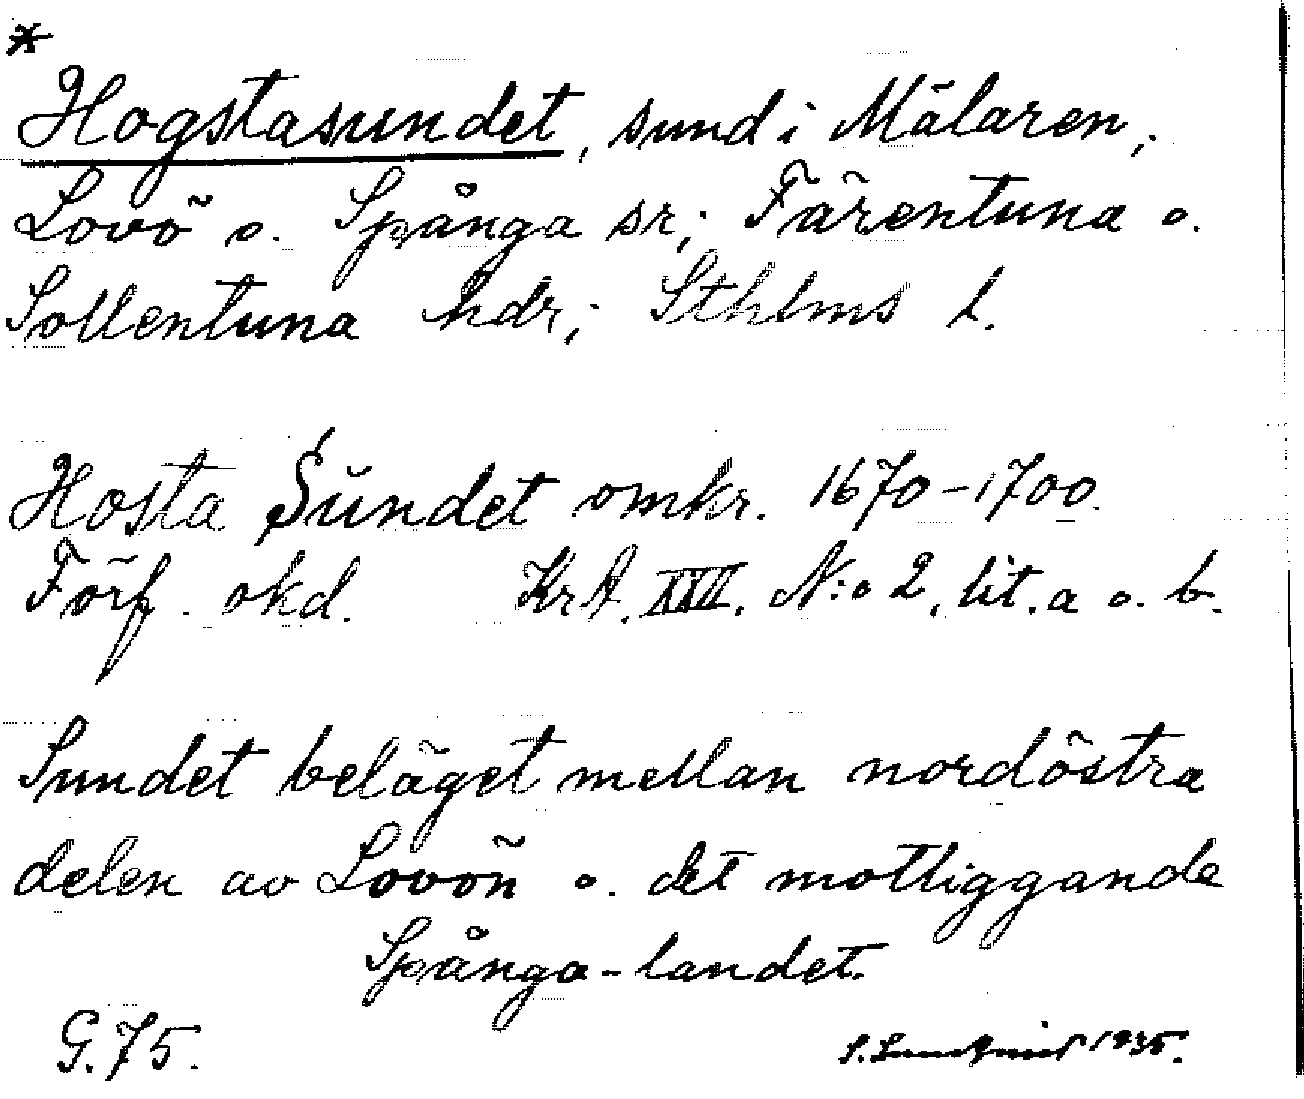 *
Hogstasundet, sund i Mälaren,
Lovö o. Spånga sr; Färentuna o.
Sollentuna hdr; Sthlms l.
Hosta Sŭndet omkr. 1670-1700.
Förf. okd. KrA. XIII. N:o 2, lit. a o. b.
Sundet beläget mellan nordöstra
delen av Lovön o. det motliggande
Spånga-landet.
G. 75. S. Lundqvist 1935.